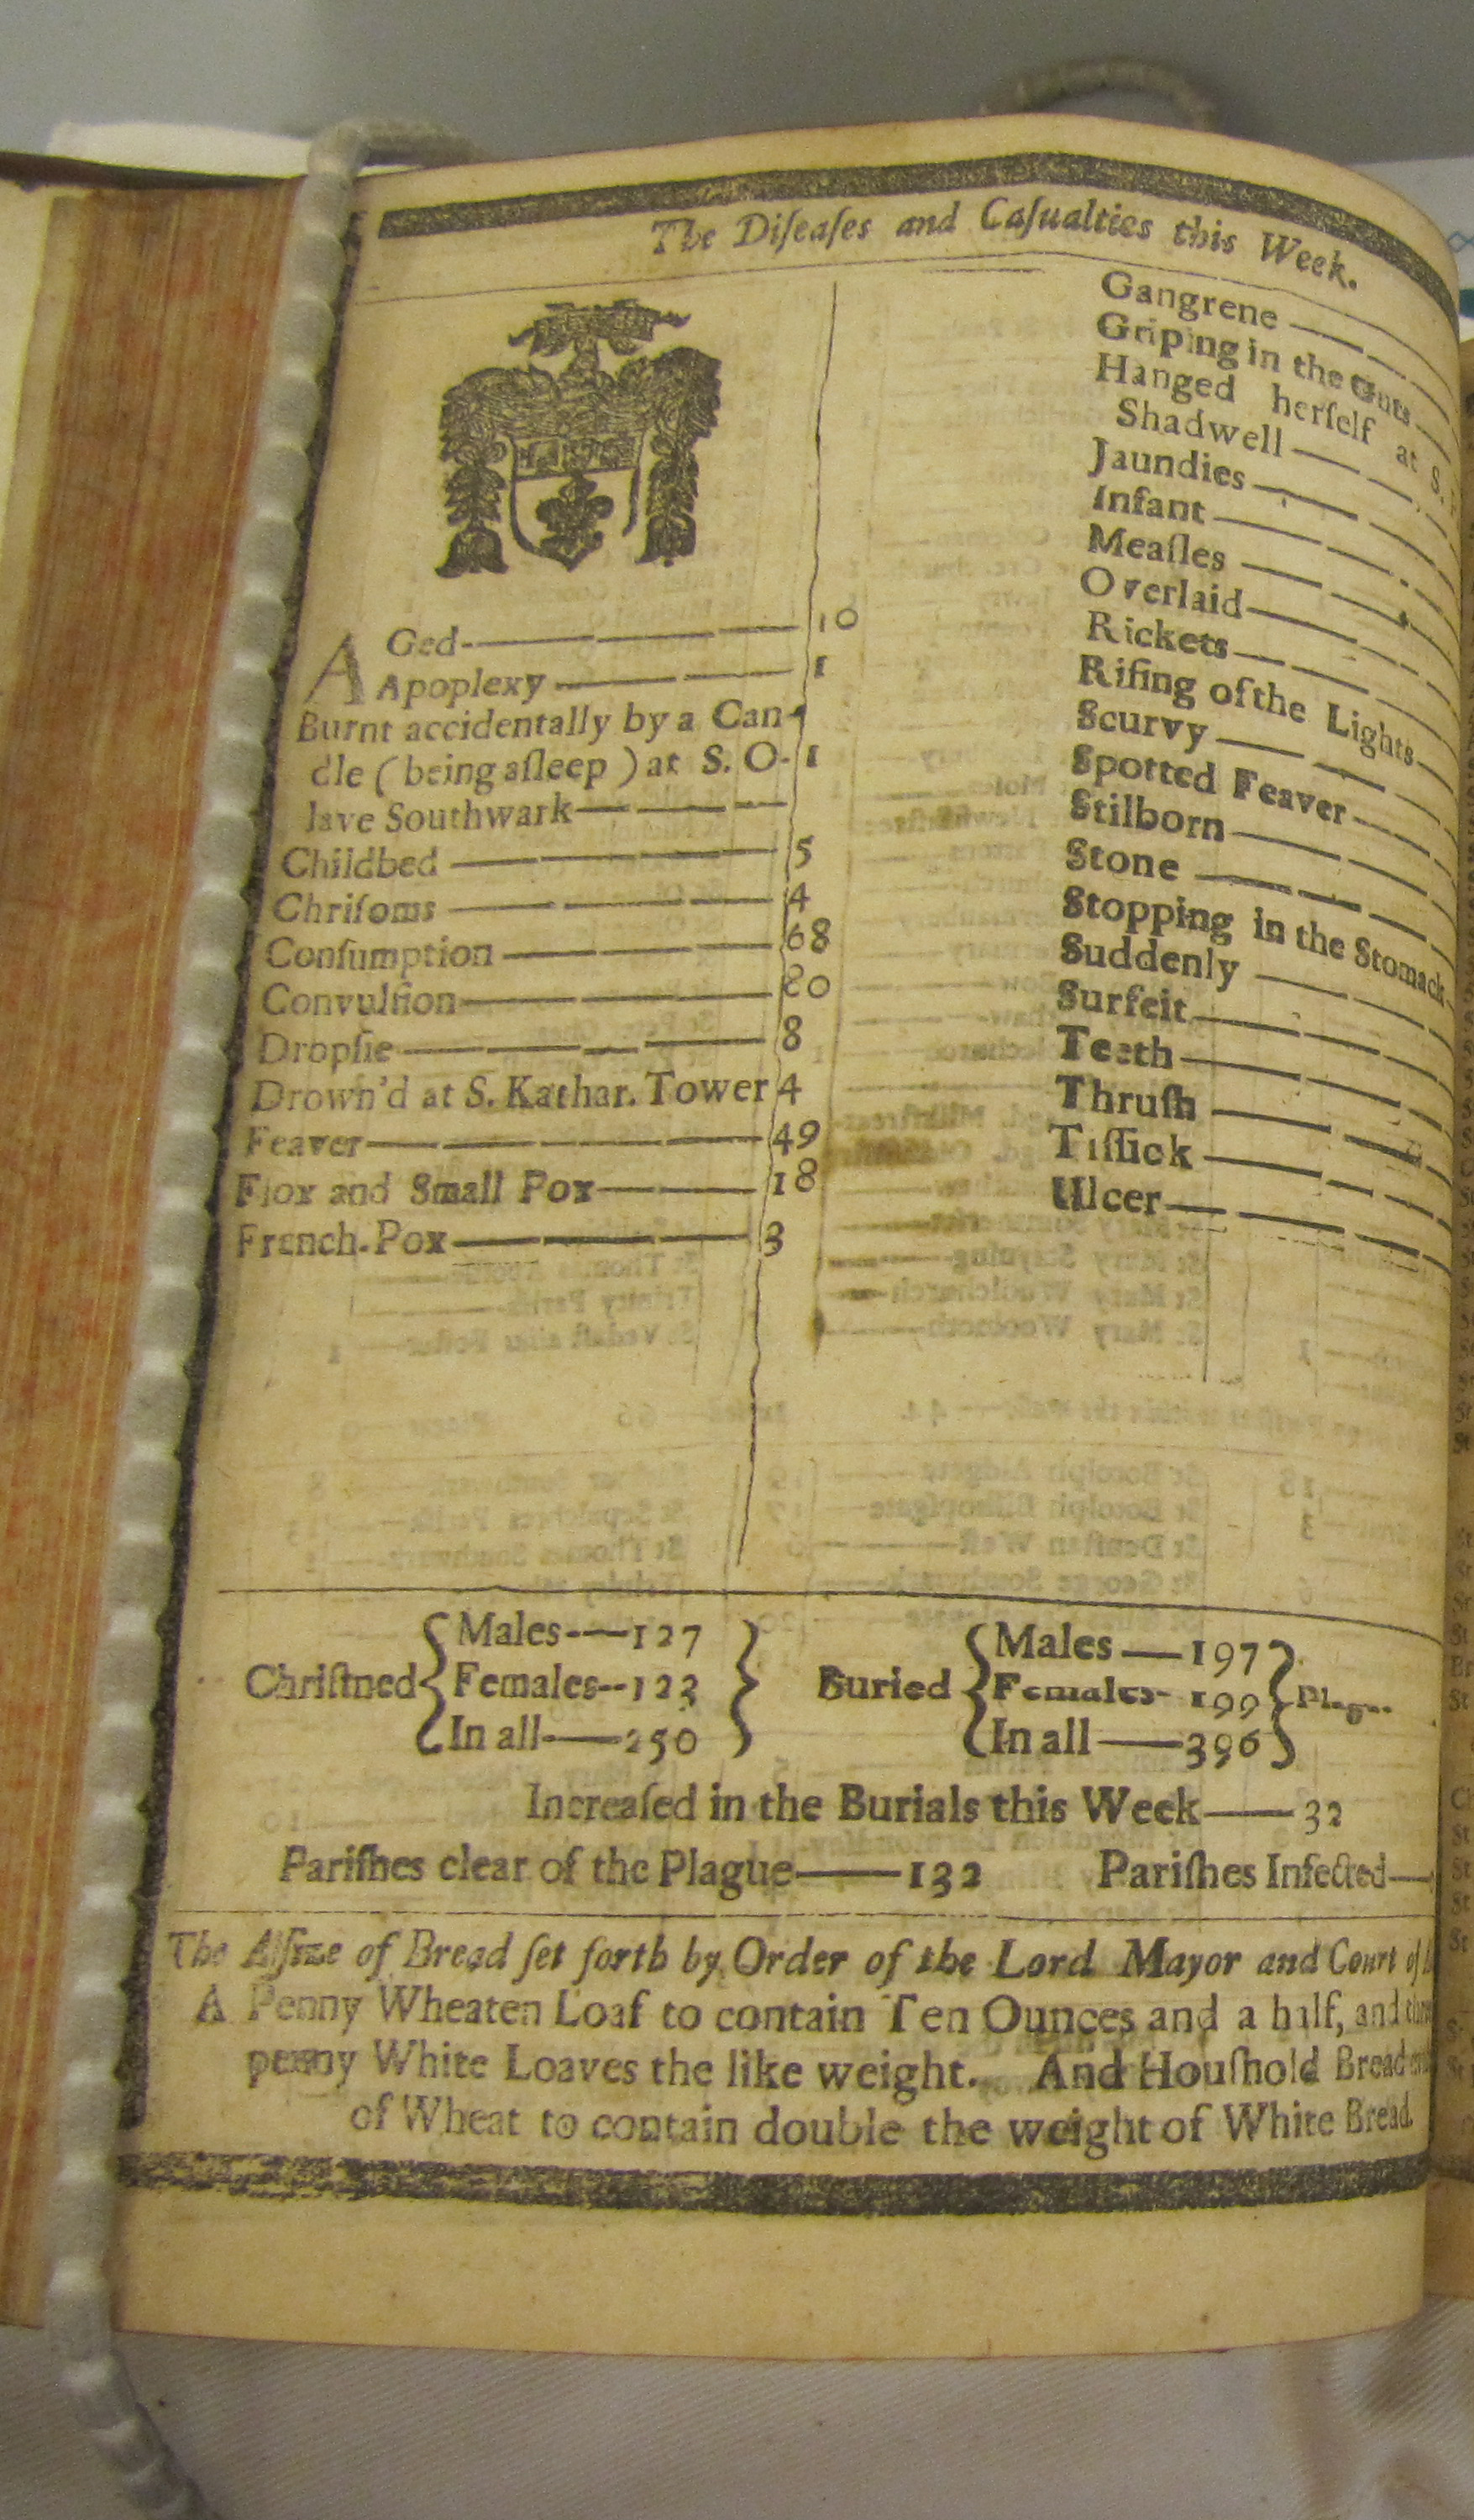 The Diſeaſes and Caſualties this Week.
AGed 10
Apoplexy 1
Burnt accidentally by a Can-
dle (being aſleep) at S. O- 1
lave Southwark
Childbed 5
Chriſoms 4
Conſumption 68
Convulſion 80
Dropſie 8
Drown'd at S. Kathar. Tower 4
Feaver 49
Flox and Small Pox 18
French-Pox 3
Gangrene
Griping in the Guts
Hanged herſelf at S.
Shadwell
Jaundies
Infant
Meaſles
Overlaid
Rickets
Riſing of the Lights
Scurvy
Spotted Feaver
Stilborn
Stone
Stopping in the Stomach
Suddenly
Surfeit
Teeth
Thruſh
Tiſſick
Ulcer
Chriſtned Males 127 Females 123 In all 250
Buried Males 197 Females 199 In all 396 Plague
Increaſed in the Burials this Week 32
Pariſhes clear of the Plague 132 Pariſhes Infected
The Aſſize of Bread ſet forth by Order of the Lord Mayor and Court of
A Penny Wheaten Loaf to contain Ten Ounces and a half, and
penny White Loaves the like weight. And Houſhold Bread
of Wheat to contain double the weight of White Bread.